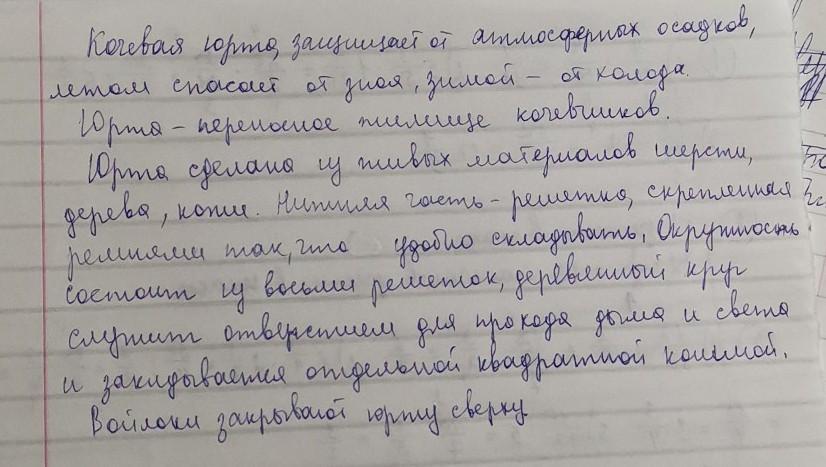 Кочевая юрта защищает от атмосферных осадков,
летом спасает от зноя, зимой – от холода.
Юрта – переносное жилище кочевников.
Юрта сделана из живых материалов шерсти,
дерева, кожи. Нижняя часть – решетка, скрепленная
ремнями так, что удобно складывать. Окружность
состоит из восьми решеток, деревянный круг
служит отверстием для прохода дыма и света
и закидывается отдельной квадратной кошмой.
Войлоки закрывают юрту сверху